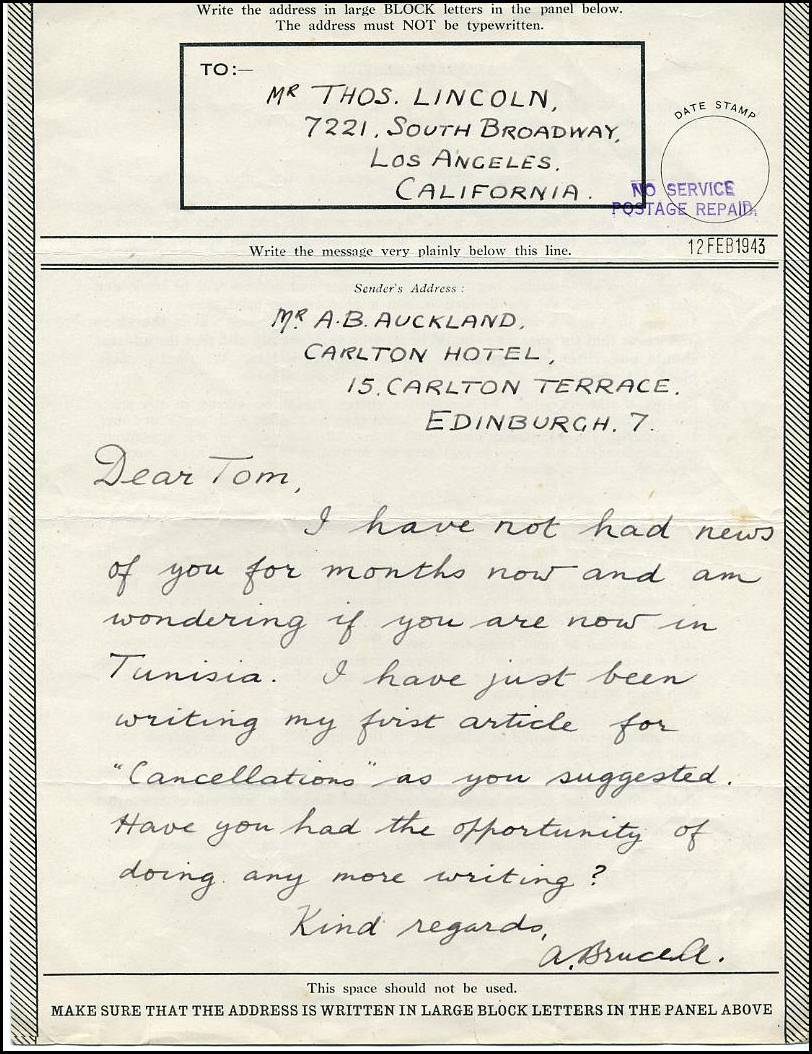 Write the address in large BLOCK letters in the panel below.
The address must NOT be typewritten.
TO:—
MR THOS. LINCOLN,
7221, SOUTH BROADWAY,
LOS ANGELES,
CALIFORNIA.
DATE STAMP
NO SERVICE
POSTAGE REPAID.
12 FEB 1943
Write the message very plainly below this line.
Sender's Address:
MR A.B. AUCKLAND,
CARLTON HOTEL,
15, CARLTON TERRACE,
EDINBURGH. 7.
Dear Tom,
I have not had news
of you for months now and am
wondering if you are now in
Tunisia. I have just been
writing my first article for
"Cancellations" as you suggested.
Have you had the opportunity of
doing any more writing?
Kind regards,
A. Bruce A.
This space should not be used.
MAKE SURE THAT THE ADDRESS IS WRITTEN IN LARGE BLOCK LETTERS IN THE PANEL ABOVE